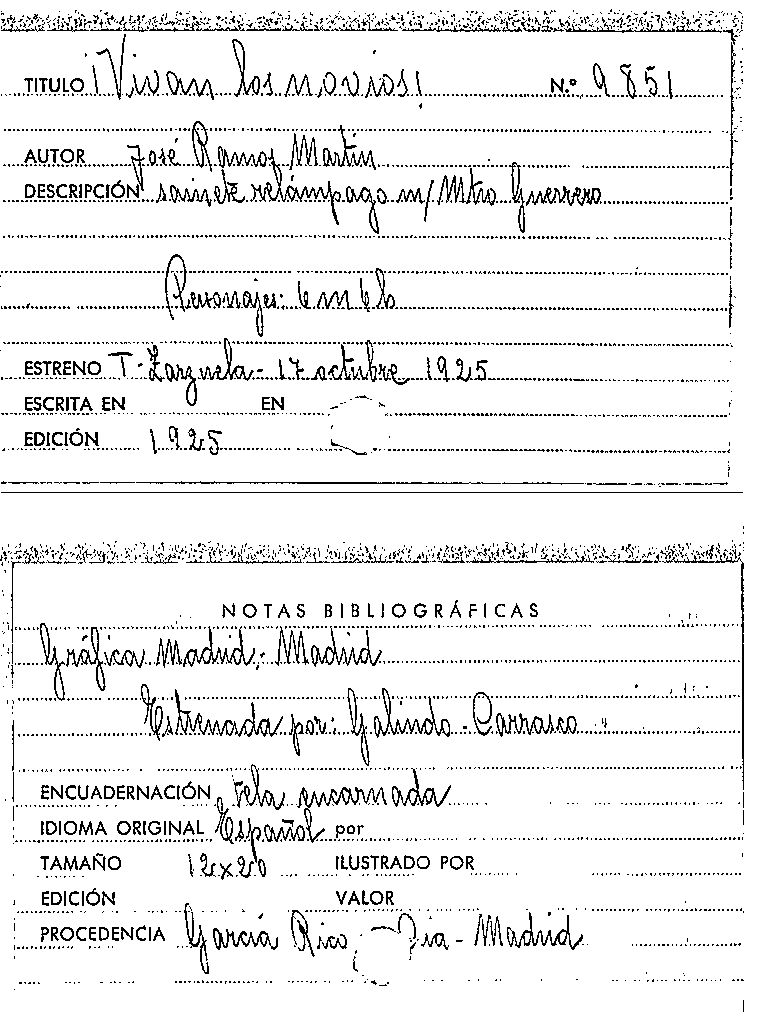 TITULO ¡Vivan los novios! N.º 9851
AUTOR José Ramos Martín
DESCRIPCIÓN sainete relámpago m/ Mtro Guerrero
Personajes: 6 m 6 h
ESTRENO T. Zarzuela - 17 octubre 1925
ESCRITA EN EN
EDICIÓN 1925
NOTAS BIBLIOGRÁFICAS
Gráfica Madrid.- Madrid
Estrenada por: Galindo - Carrasco
ENCUADERNACIÓN tela encarnada
IDIOMA ORIGINAL Español por
TAMAÑO 12x20 ILUSTRADO POR
EDICIÓN VALOR
PROCEDENCIA García Rico - Madrid